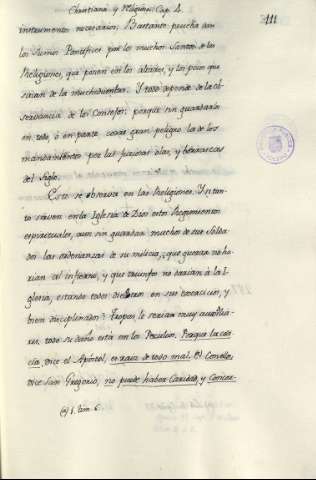 Christiana y Religiosa. Cap. 4.
111
instrumentos necesarios. Bastante prueba son
los Sumos Pontifices por los muchos Santos de las
Religiones, que ponen en los altares, y los pocos que
sacan de la muchedumbre. Y todo depende de la ob-
servancia de los Consejos: porque sin guardarlos
en todo, ó en parte, corre gran peligro la de los
mandamientos por las furiosas olas, y borrascas
del Siglo.
Esto se observa en las Religiones. Y si tan-
to sirven en la Iglesia de Dios estos Regimientos
espirituales, aun sin guardar muchos de sus solda-
dos las ordenanzas de su milicia; que guerra no ha-
rian al infierno, y que triunfos no darian á la I-
glesia, estando todos diestros en su vocacion, y
bien disciplinados? Tropas le serian muy auxilia-
res. todo su daño está en los Peculios. Porque la codi-
cia, dice el Apostol, es raiz de todo mal. Ni Concilio,
dice San Gregorio, no puede haber Caridad, y Concor-
(a) 1. tim. 6.